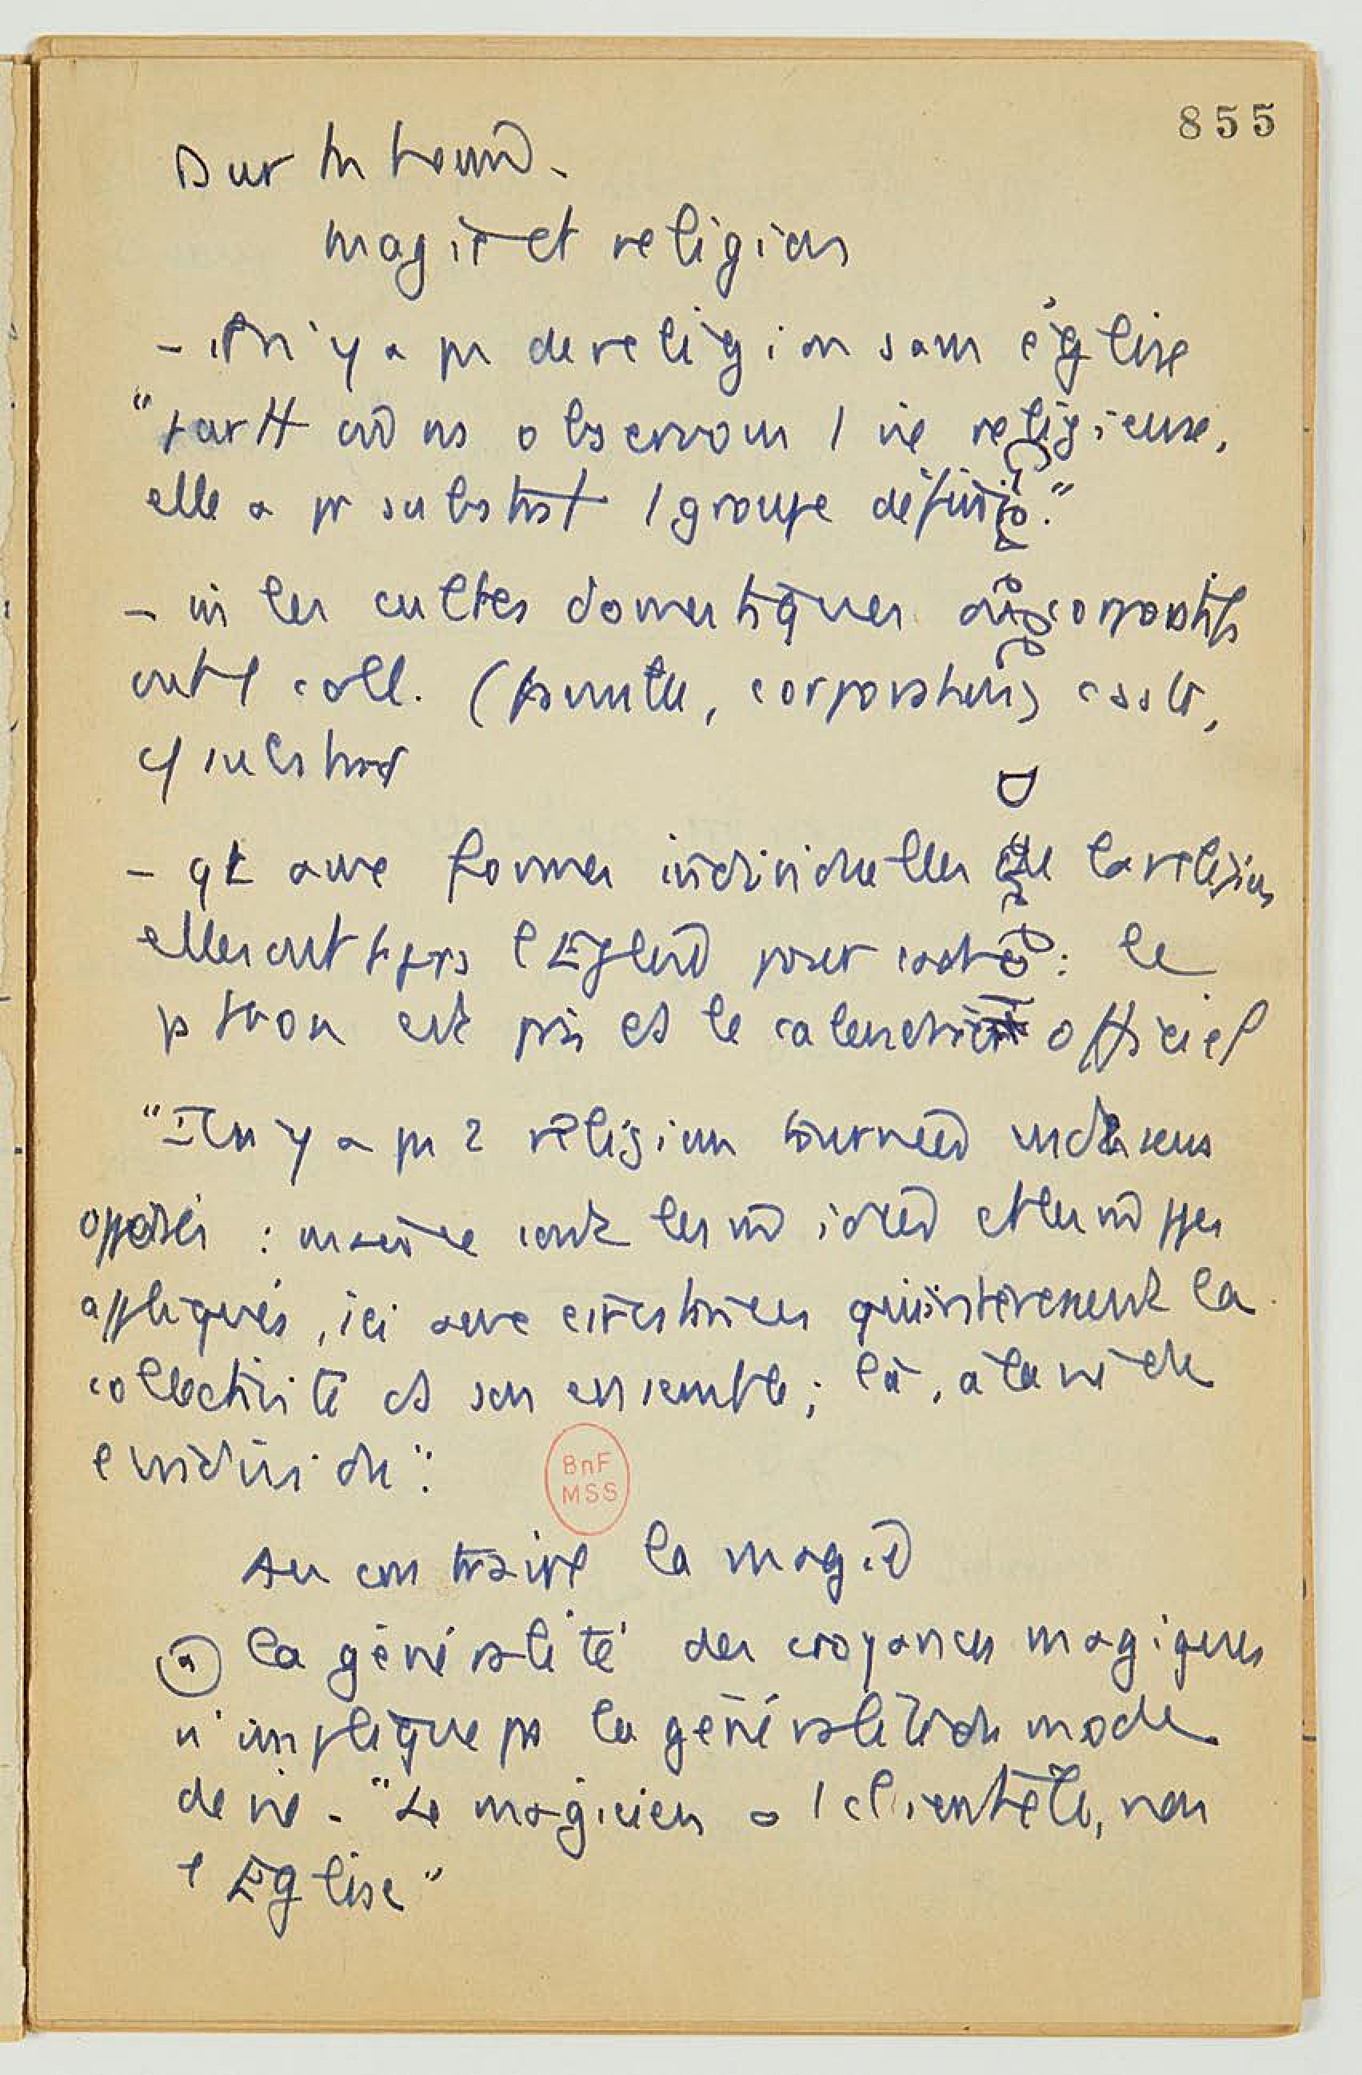 855
Dur
magie et religion
- Il n'y a pas de religion sans église
"part où ns observons 1 vie religieuse,
elle a pr substrat 1 groupe défini."
- ni les cultes domestiques ou corporatifs
ont 1 coll. (famille, corporation)
pr substrat
- qt aux formes individuelles de la religion
elles ont tjrs l'Eglise pour cadre : le
patron est pris ds le calendrier officiel
"Il n'y a pas 2 religions tournées en des sens
opposés : mais ce sont les m̂ idées et les m̂ ppes
appliqués, ici aux circstances qui intéressent la
collectivité ds son ensemble ; là, à la vie de
l'individu".
BnF
MSS
Au contraire la magie
(a) la généralité des croyances magiques
n'implique ps la généralité du mode
de vie - "Le magicien a 1 clientèle, non
1 Eglise"